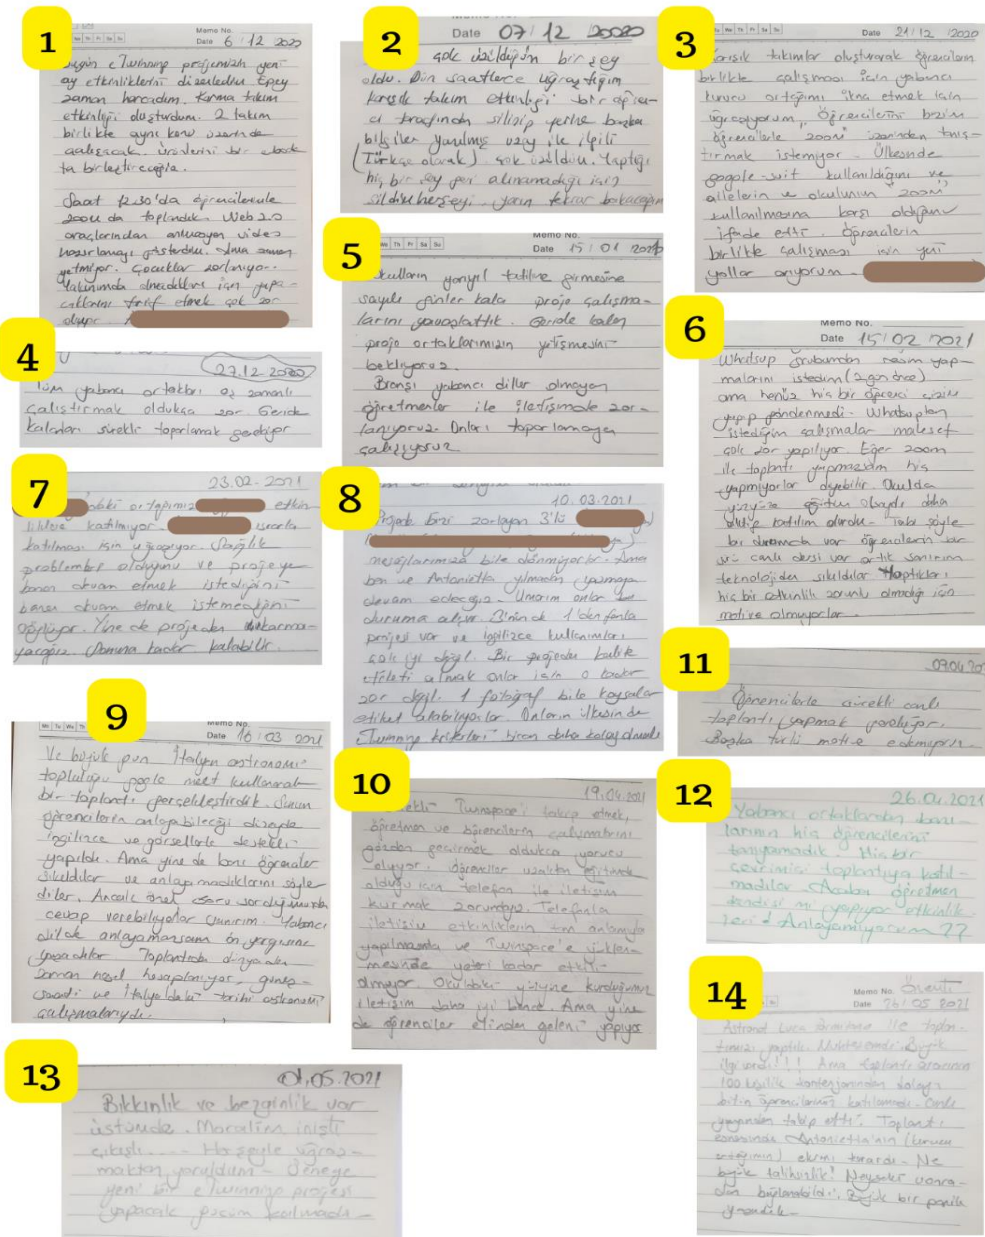 1
Memo No.
Date 6/12 2020
Bugün eTwinning projemizin yeni
ay etkinliklerini düzenledim. Epey
zaman harcadım. Karma takım
etkinliği oluşturdum. 2 takım
birlikte aynı konu üzerinde
çalışacak. Ürünlerini bir ebook
ta birleştireceğiz.
Saat 12.30'da öğrencilerimle
zoom da toplandık. Web 2.0
araçlarından animasyon video
hazırlamayı gösterdim. Ama zaman
yetmiyor. Çocuklar zorlanıyor.
Yakınımda olmadıkları için yapa-
caklarını tarif etmek çok zor
oluyor.
2
Memo No.
Date 07/12 2020
çok üzüldüğüm bir şey
oldu. Dün saatlerce uğraştığım
karışık takım etkinliği bir öğren-
ci tarafından silinip yerine başka
bilgiler yazılmış uzay ile ilgili
(Türkçe olarak) çok üzüldüm. Yaptığı
hiç bir şey geri alınamadığı için
sildim herşeyi. yarın tekrar bakacağım
3
Date 21/12 2020
Karışık takımlar oluşturarak öğrencilerin
birlikte çalışması için yabancı
kurucu ortağımı ikna etmek için
uğraşıyorum. Öğrencilerini bizim
öğrencilerle zoom üzerinden tanış-
tırmak istemiyor. Ülkesinde
google-suit kullanıldığını ve
ailelerin ve okulunun "zoom"
kullanılmasına karşı olduğunu
ifade etti. Öğrencilerin
birlikte çalışması için yeni
yollar arıyorum.
4
27.12 2020
Tüm yabancı ortakları eş zamanlı
çalıştırmak oldukça zor. Geride
kalanları sürekli toparlamak gerekiyor
5
We Th Fr Sa Su
Memo No.
Date 15/01 2021
Okulların yarıyıl tatiline girmesine
sayılı günler kala proje çalışma-
larını yavaşlattık. Geride kalan
proje ortaklarımızın yetişmesini
bekliyoruz.
Branşı yabancı diller olmayan
öğretmenler ile iletişimde zor-
lanıyoruz. Onları toparlamaya
çalışıyoruz
6
Memo No.
Date 15/02 2021
Whatsup grubundan resim yap-
malarını istedim (2 gün önce)
ama henüz hiç bir öğrenci çizim
yapıp göndermedi. Whatsuptan
istediğim çalışmalar malesef
çok zor yapılıyor. Eğer zoom
ile toplantı yapmazsam hiç
yapmıyorlar diyebilir. Okulda
yüzyüze eğitim olsaydı daha
aktif katılım olurdu. Tabi şöyle
bir durumda var öğrencilerin bir
sürü canlı dersi var artık sanırım
teknolojiden sıkıldılar. Yaptıkları
hiç bir etkinlik zorunlu olmadığı için
motive olmuyorlar.
7
23.02.2021
daki ortağımız etkin-
liklere katılmıyor. ısrarla
katılması için uğraşıyor. Sağlık
problemleri olduğunu ve projeye
bazen devam etmek istediğini
bazen devam etmek istemediğini
söylüyor. Yine de projeden çıkarma-
yacağız. Sonuna kadar kalabilir.
8
10.03.2021
Projede bizi zorlayan 3'lü
mesajlarımıza bile dönmüyorlar. Ama
ben ve Antonietta yılmadan yazmaya
devam edeceğiz. Umarım onlar
duruma alışır. 3'nün de 1'den fazla
projesi var ve İngilizce kullanımları
çok iyi değil. Bir projeden kalite
etiketi almak onlar için o kadar
zor değil. 1 fotoğraf bile koysalar
etiket alabiliyorlar. Onların ülkesinde
eTwinning kriterleri biraz daha kolay olmalı
9
Mo Tu We Th
Memo No.
Date 16/03 2021
Ve büyük gün İtalyan astronomi
topluluğu google meet kullanarak
bir toplantı gerçekleştirdik. Sunum
öğrencilerin anlayabileceği düzeyde
ingilizce ve görsellerle destekli
yapıldı. Ama yine de bazı öğrenciler
sıkıldılar ve anlayamadıklarını söyle
diler. Ancak özel soru sorduğumuzda
cevap verebiliyorlar sanırım. Yabancı
dilde anlayamazsam ön yargısını
yaşadılar. Toplantıda dünyadan
zaman nasıl hesaplanıyor, güneş
saati ve İtalya'daki tarihi astronomi
çalışmalarıydı.
10
19.04.2021
Sürekli Twinspace'i takip etmek,
öğretmen ve öğrencilerin çalışmalarını
gözden geçirmek oldukça yorucu
oluyor. Öğrenciler uzaktan eğitimde
olduğu için telefon ile iletişim
kurmak zorundayız. Telefonla
iletişim etkinliklerin tam anlamıyla
yapılmasında ve Twinspace'e yüklen-
mesinde yeteri kadar etkili
olmuyor. Okuldaki yüzyüze kurduğumuz
iletişim daha iyi bence. Ama yine
de öğrenciler elinden geleni yapıyor
11
09.04.20
Öğrencilerle sürekli canlı
toplantı yapmak yoruluyor.
Başka türlü motive edemiyorum.
12
26.04.2021
Yabancı ortaklardan bazı-
larının hiç öğrencilerini
tanıyamadık. Hiç bir
çevrimiçi toplantıya katıl-
madılar. Acaba öğretmen
kendisi mi yapıyor etkinlik-
leri? Anlayamıyorum??
13
01.05.2021
Bıkkınlık ve bezginlik var
üstümde. Moralim inişli
çıkışlı.... Herşeyle uğraş-
maktan yoruldum. Seneye
yeni bir eTwinning projesi
yapacak gücüm kalmadı.
14
Memo No. Önemli
Date 26/05 2021
Astronot Luca Parmitano ile toplan-
tımızı yaptık. Muhteşemdi. Büyük
ilgi vardı!!! Ama toplantı aracının
100 kişilik kontenjanından dolayı
bütün öğrencilerim katılamadı. Canlı
yayından takip etti. Toplantı
esnasında Antonietta'nın (kurucu
ortağımın) ekranı karardı. Ne
büyük talihsizlik! Neyseki sonra-
dan bağlanabildi. Büyük bir panik
yaşadık.